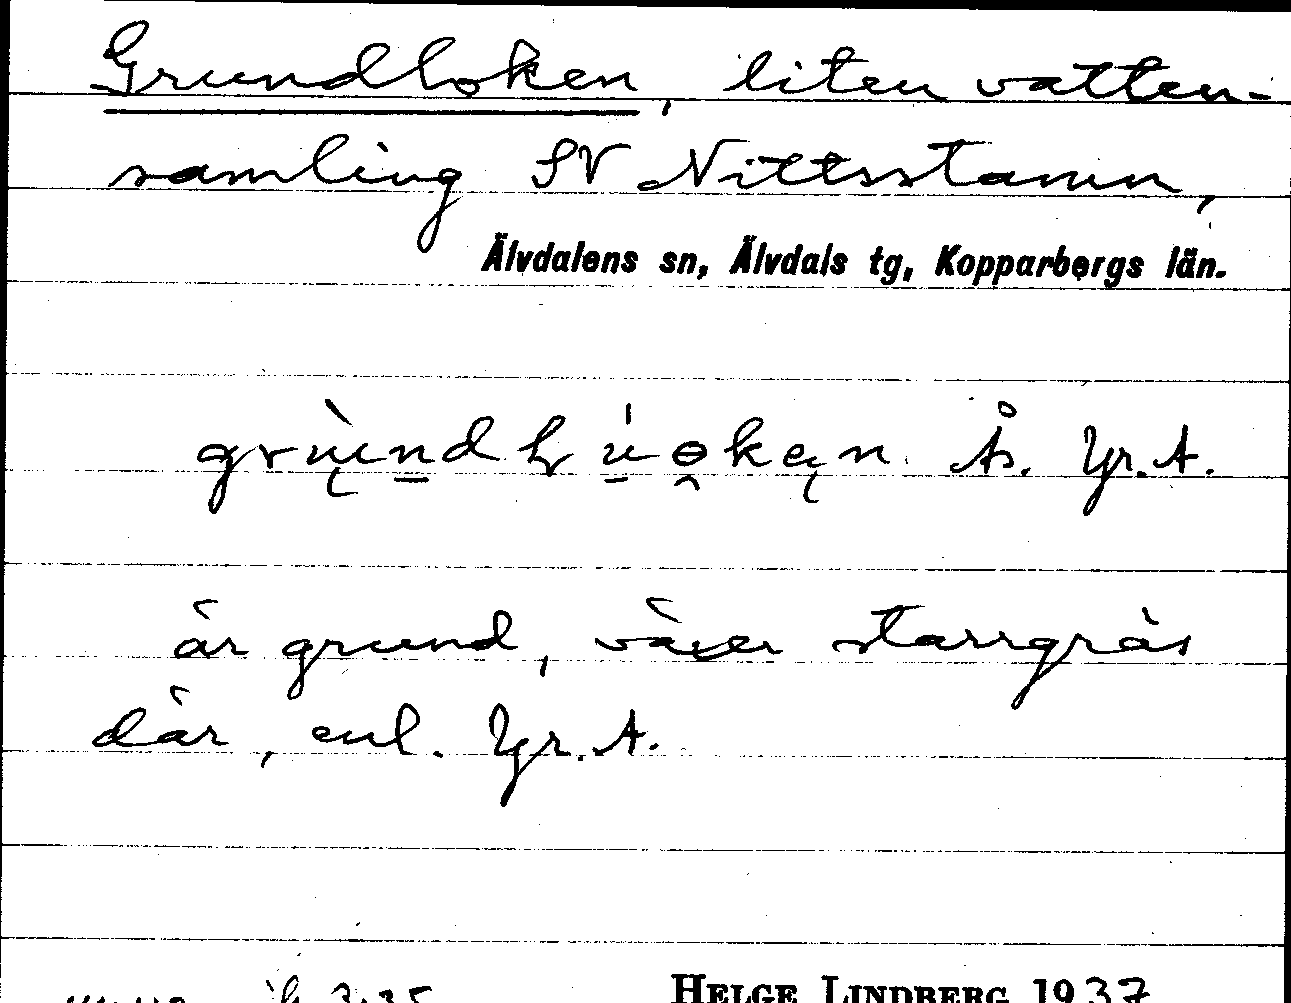 Grundloken, liten vatten-
samling SV Nittsstamm,
Älvdalens sn, Älvdals tg, Kopparbergs län.
Ås. Yr. A.
är grund, växer starrgräs
där, enl. Yr. A.
HELGE LINDBERG 1937